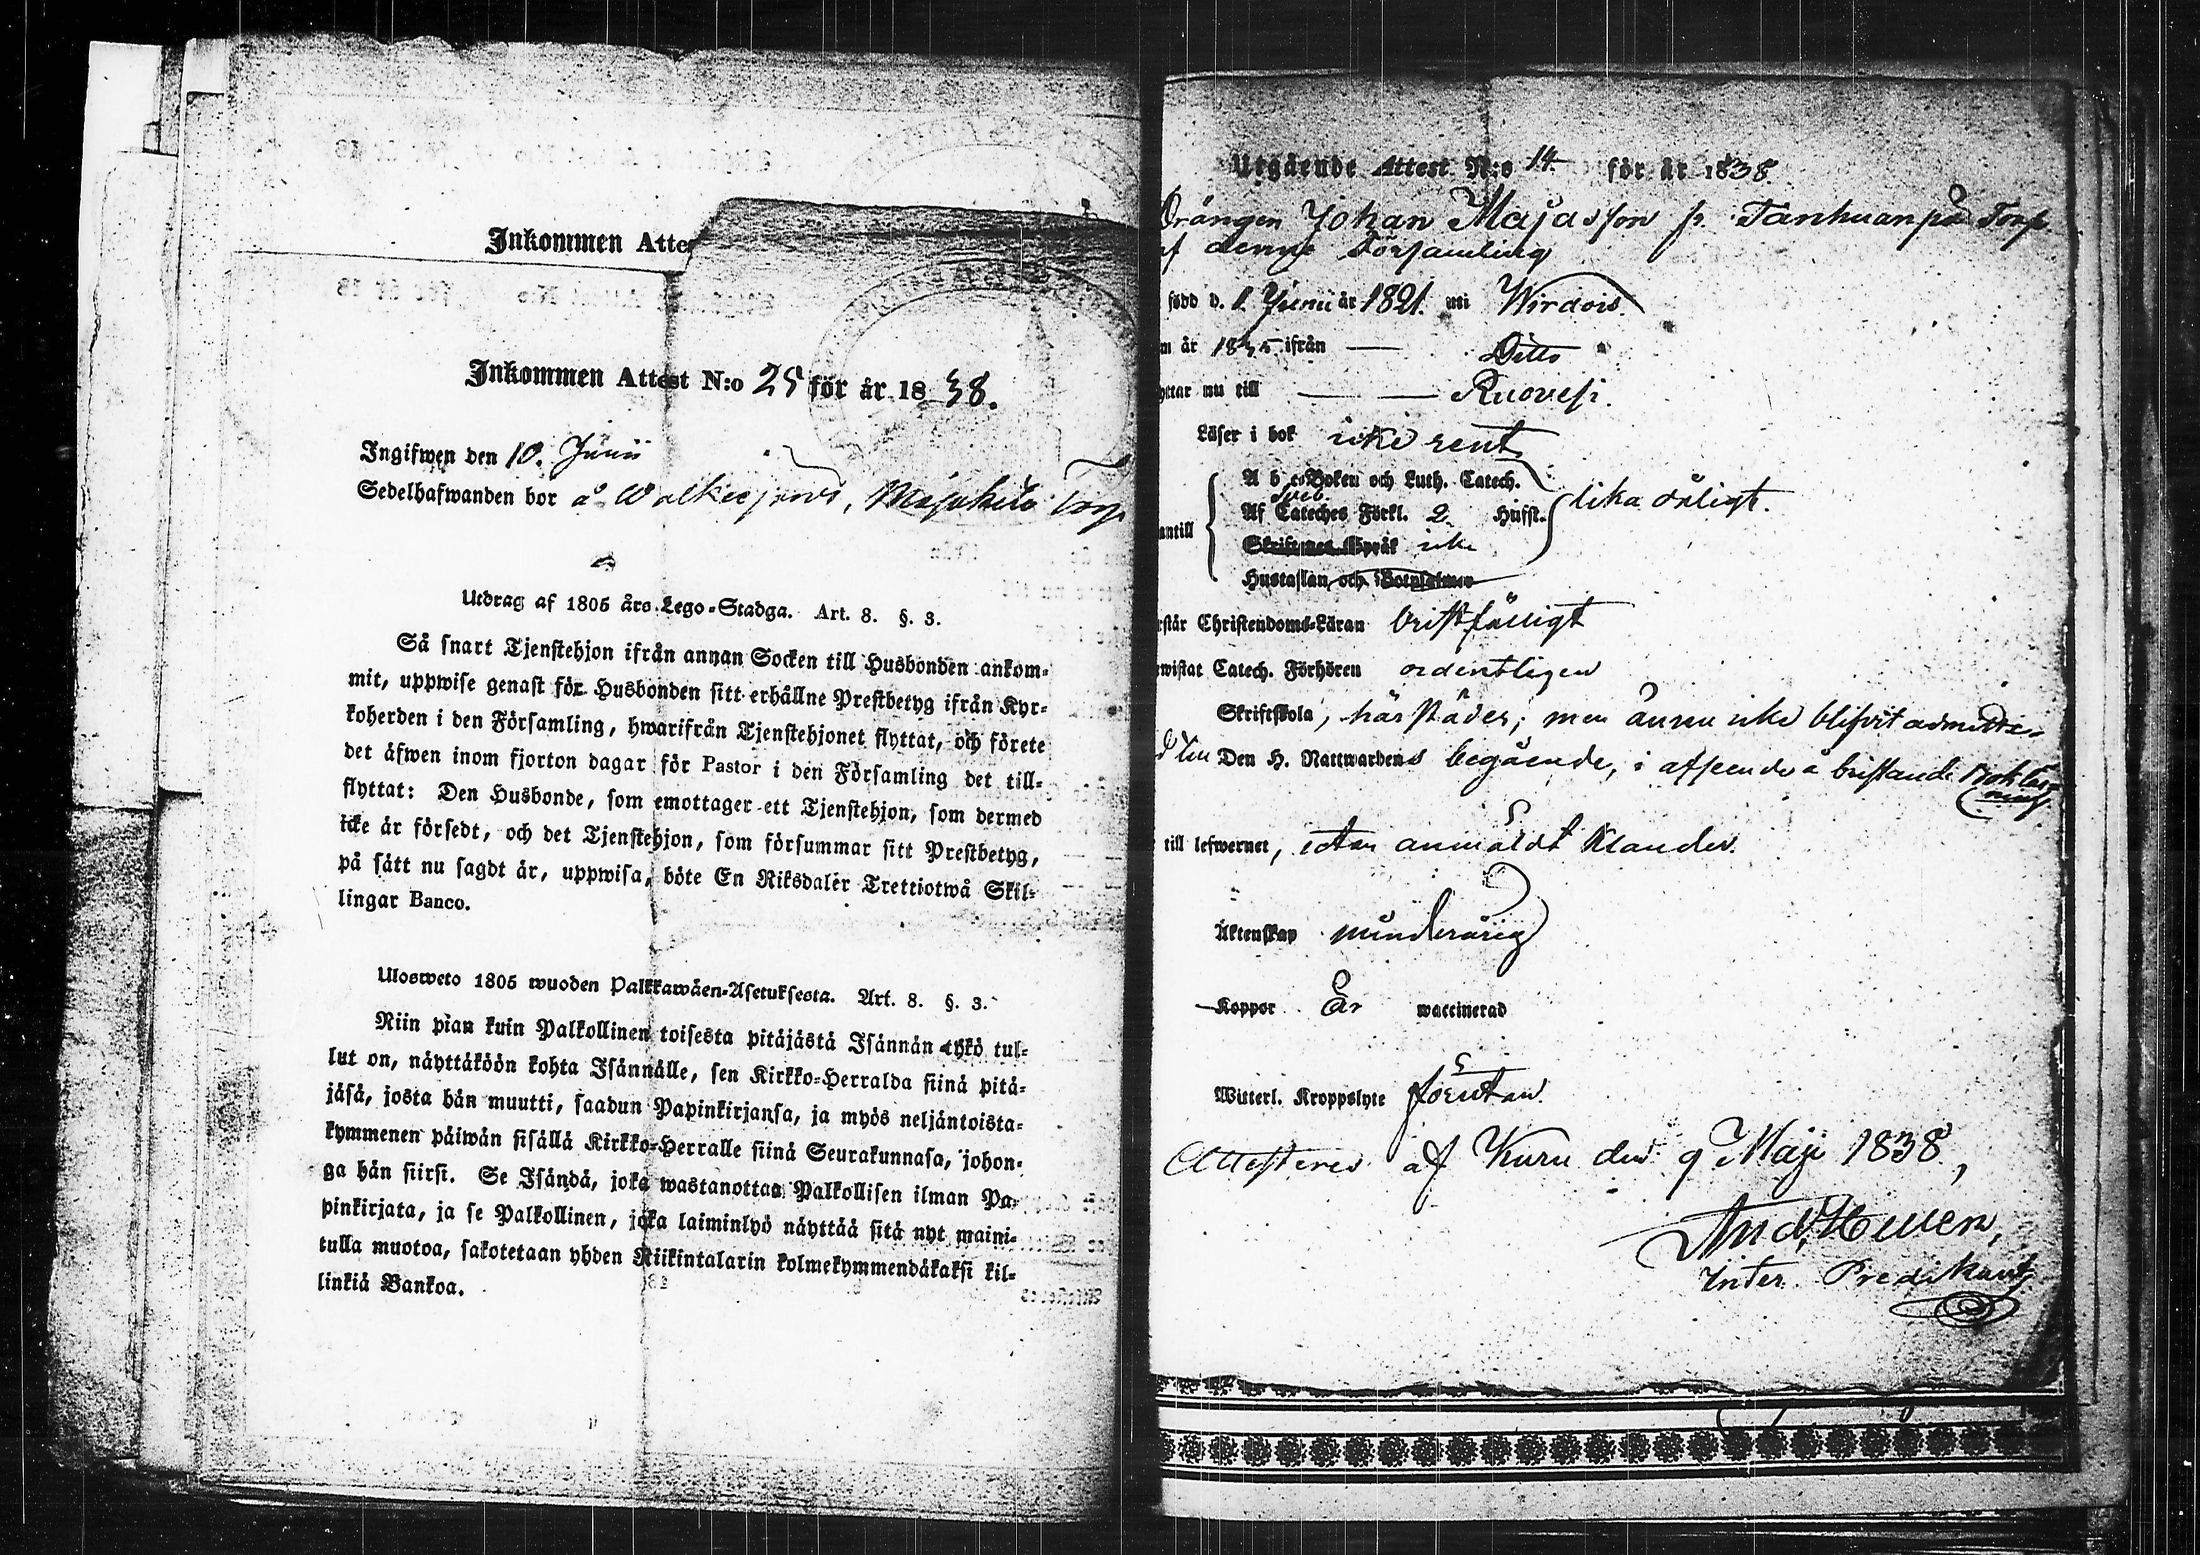 Inkommen Atte
Inkommen Attest N:o 25 för år 1838.
Ingifwen den 10. Junii
Sedelhafwanden bor å Walkeejärvi, Majakulo Torp
Utdrag af 1805 års Lego-Stadga. Art. 8. §. 3.
Så snart Tjenstehjon ifrån annan Socken till Husbonden ankom-
mit, uppwise genast för Husbonden sitt erhållne Prestbetyg ifrån Kyr-
koherden i den Församling, hwarifrån Tjenstehjonet flyttat, och förete
det äfwen inom fjorton dagar för Pastor i den Församling det till-
flyttat: Den Husbonde, som emottager ett Tjenstehjon, som dermed
icke är försedt, och det Tjenstehjon, som försummar sitt Prestbetyg,
på sätt nu sagdt är, uppwisa, böte En Riksdaler Trettiotwå Skil-
lingar Banco.
Ulosweto 1805 wuoden Palkkawäen-Asetuksesta. Art. 8. §. 3.
Niin pian kuin Palkollinen toisesta pitäjästä Isännän tykö tul-
lut on, näyttäköön kohta Isännälle, sen Kirkko-Herralda siinä pitä-
jäsä, josta hän muutti, saadun Papinkirjansa, ja myös neljäntoista-
kymmenen päiwän sisällä Kirkko-Herralle siinä Seurakunnasa, johon-
ga hän siirsi. Se Isändä, joka wastanottaa Palkollisen ilman Pa-
pinkirjata, ja se Palkollinen, joka laiminlyö näyttää sitä nyt maini-
tulla muotoa, sakotetaan yhden Riikintalarin kolmekymmendäkaksi kil-
linkiä Bankoa.
Utgående Attest N:o 14. för år 1838.
Drängen Johan Majasson fr. Tanhuanpää Torp
af denna Församling
född d. 1. Junii år 1821. uti Wirdois.
m år 1835 ifrån — Ditto
yttar nu till — — Ruovesi.
Läser i bok icke rent
A b c Boken och Luth. Catech.
Sveb.
Af Cateches Förkl. 2. Hufst. lika dåligt.
antill Skriftenes Språk icke
Hustaflan och Botpsalmer
rstår Christendoms-Läran bristfälligt
wistat Catech. Förhören ordentligen
Skriftskola, härstädes; men ännu icke blifvit admitte-
d till Den H. Nattwardens begående, i afseende å bristande Boklär-
ning
till lefwernet, utan anmäldt klander.
Äktenskap minderårig
Koppor Är waccinerad
Witterl. Kroppslyte förutan.
Attesteres af Kuru den 9 Maji 1838.,
And. Hellen,
Inter. Predikant.